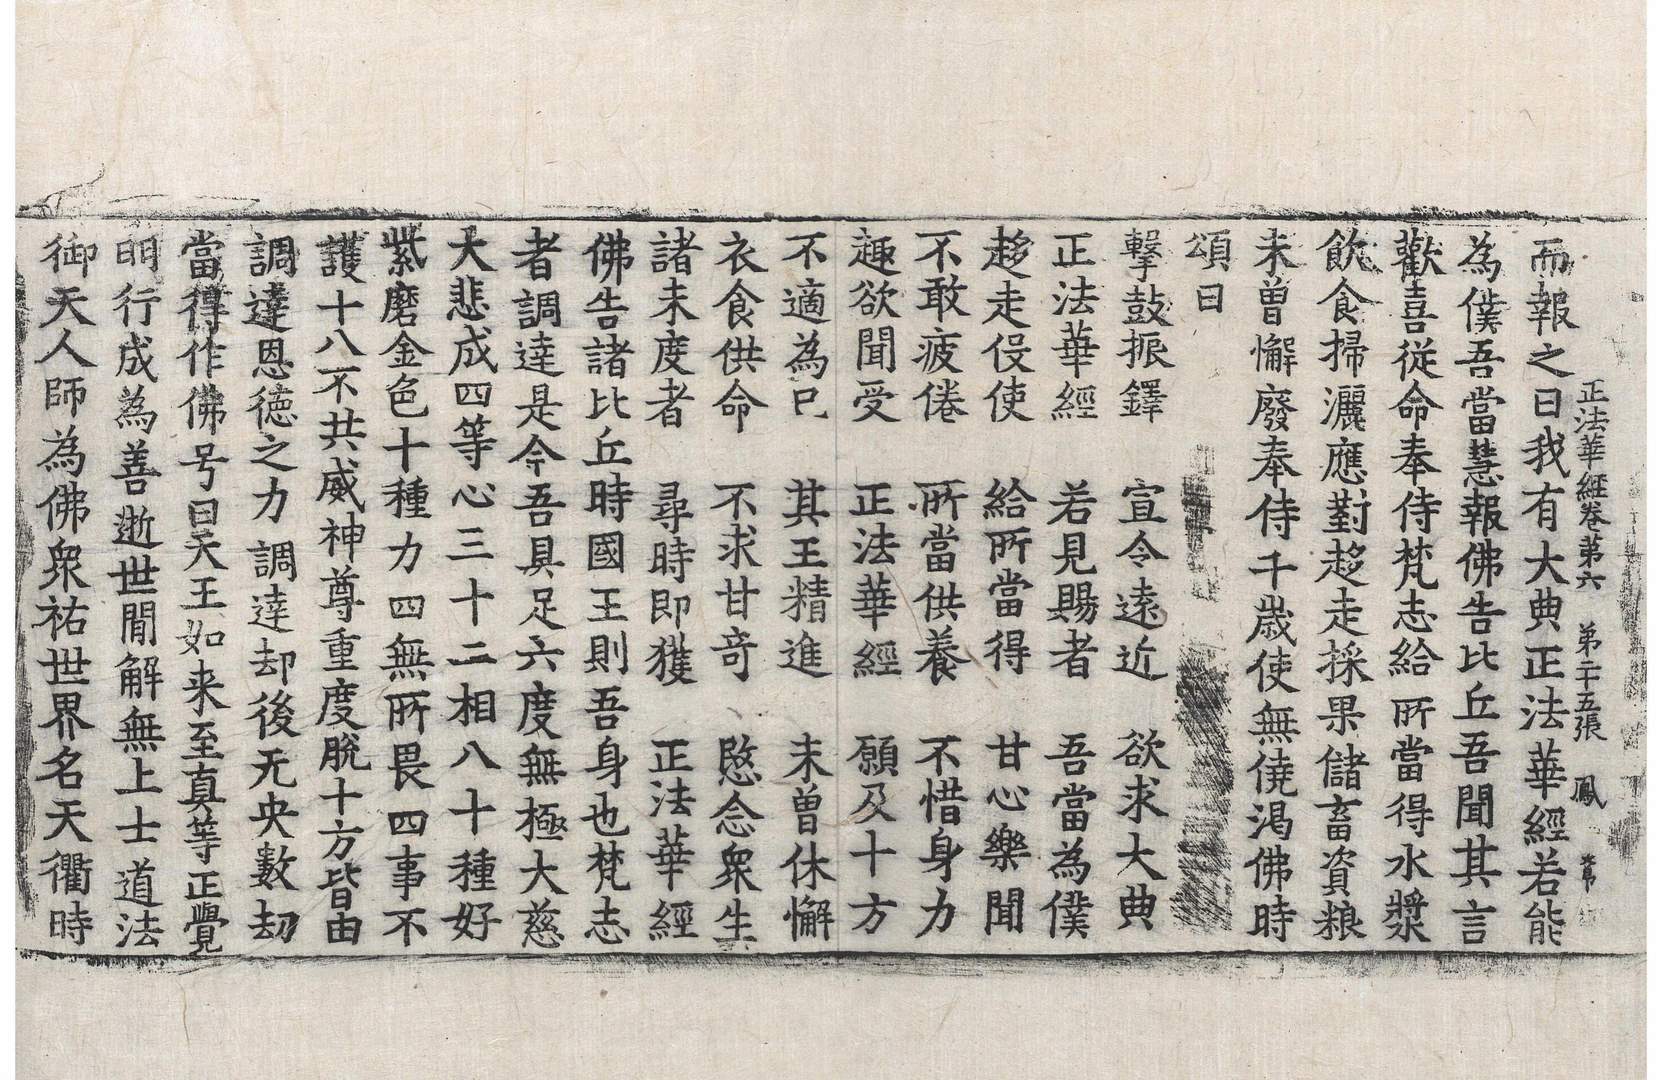 正法華經卷第六 第二十五張 鳳
而報之曰我有大典正法華經若能
為僕吾當慧報佛告比丘吾聞其言
歡喜從命奉侍梵志給所當得水漿
飲食掃灑應對趍走採果儲畜資粮
未曾懈廢奉侍千歲使無僥渴佛時
頌曰
擊鼓振鐸 宣令遠近 欲求大典
正法華經 若見賜者 吾當為僕
趍走役使 給所當得 甘心樂聞
不敢疲倦 所當供養 不惜身力
趣欲聞受 正法華經 願及十方
不適為已 其王精進 未曾休懈
衣食供命 不求甘竒 愍念衆生
諸未度者 尋時即獲 正法華經
佛告諸比丘時國王則吾身也梵志
者調達是今吾具足六度無極大慈
大悲成四等心三十二相八十種好
紫磨金色十種力四無所畏四事不
護十八不共威神尊重度脫十方皆由
調達恩德之力調達却後无央數劫
當得作佛号曰天王如来至真等正覺
明行成為善逝世間解無上士道法
御天人師為佛衆祐世界名天衢時